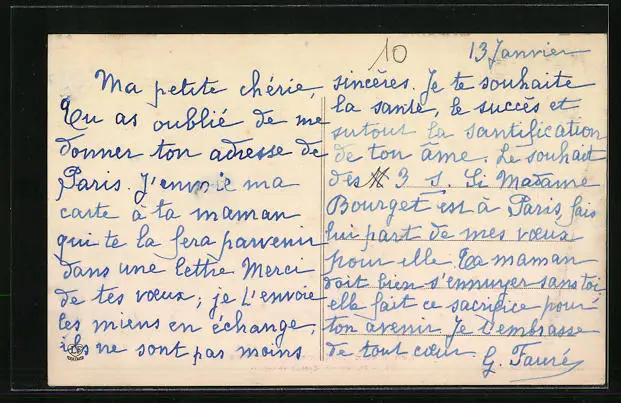 10
13 Janvier
Ma petite chérie,
Tu as oublié de me
donner ton adresse de
Paris. J'envoie ma
carte à ta maman
qui te la fera parvenir
dans une lettre Merci
de tes vœux ; je t'envoie
les miens en échange,
ils ne sont pas moins
sincères. Je te souhaite
la santé, le succès et
surtout la santification
de ton âme. Le souhait
des 3 s. Si Madame
Bourget est à Paris, fais
lui part de mes vœux
pour elle. Ta maman
doit bien s'ennuyer sans toi
elle fait ce sacrifice pour
ton avenir Je t'embrasse
de tout cœur
G. Fauré